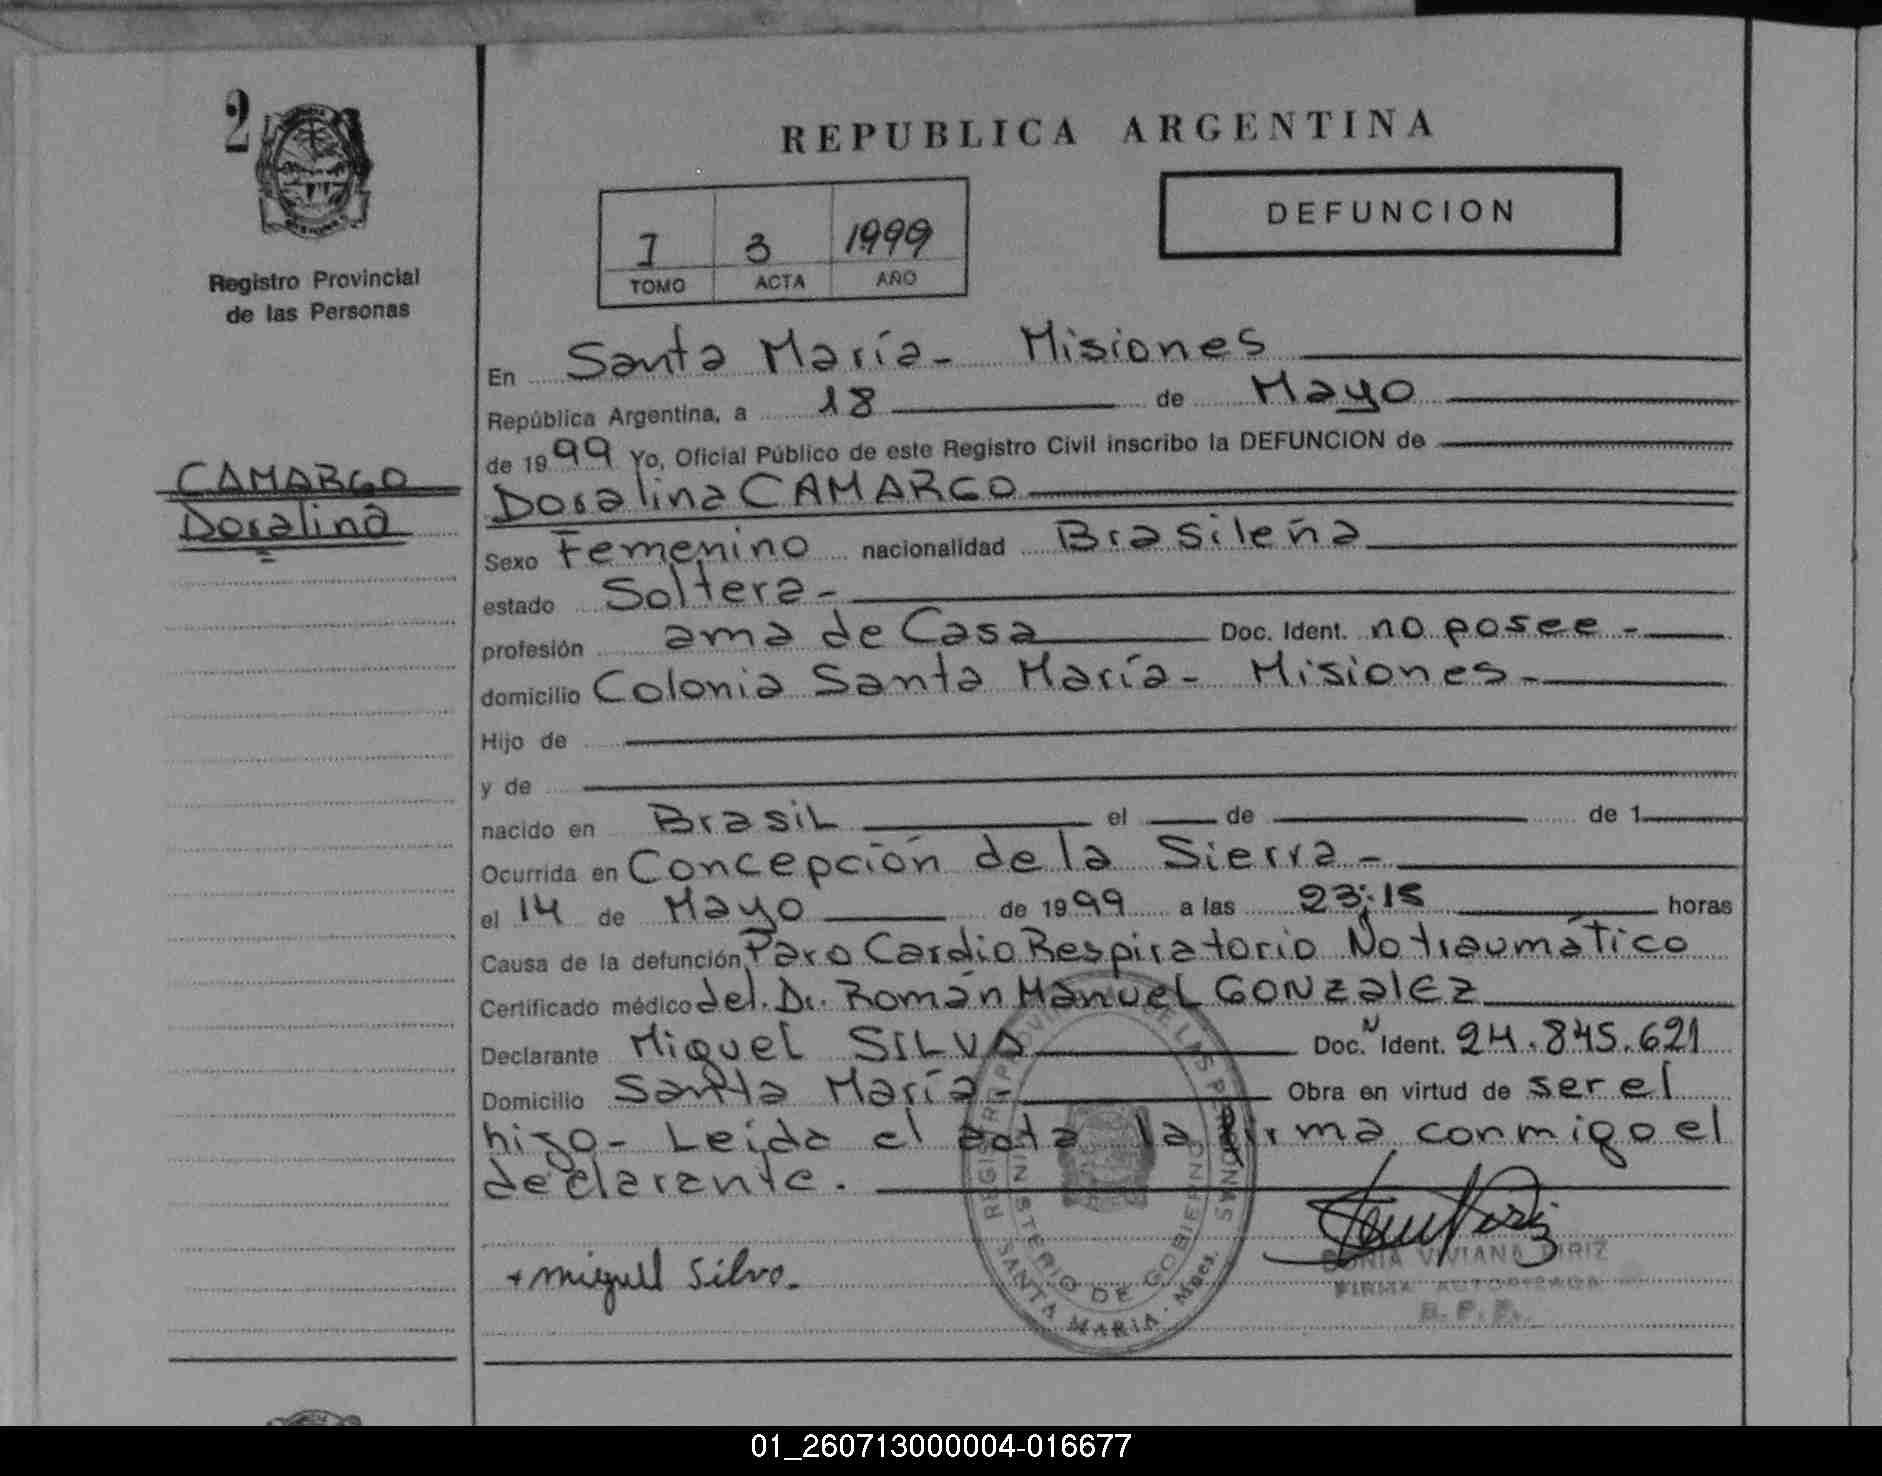 2
Registro Provincial
de las Personas
REPUBLICA ARGENTINA
DEFUNCION
1 3 1999
TOMO ACTA AÑO
CAMARGO
Dosalina
En Santa María - Misiones
República Argentina, a 18 de Mayo
de 1999 Yo, Oficial Público de este Registro Civil inscribo la DEFUNCION de
Dosalina CAMARGO
Sexo Femenino nacionalidad Brasileña
estado Soltera -
profesión ama de Casa Doc. Ident. no posee -
domicilio Colonia Santa María - Misiones -
Hijo de
y de
nacido en Brasil el de de 1
Ocurrida en Concepción de la Sierra -
el 14 de Mayo de 1999 a las 23:15 horas
Causa de la defunción Paro Cardio Respiratorio No traumático
Certificado médico del Dr. Román Manuel GONZalEZ
Declarante Miguel SILVA Doc. N Ident. 24.845.621
Domicilio Santa María - Obra en virtud de ser el
hijo - Leída el acta la firma conmigo el
declarante.
REGISTRO PROVINCIAL DE LAS PERSONAS
MINISTERIO DE GOBIERNO
SANTA MARIA - Mnes.
+ miguel Silva.
SONIA VIVIANA PIRIZ
FIRMA AUTORIZADA
R. P. P.
01_260713000004-016677